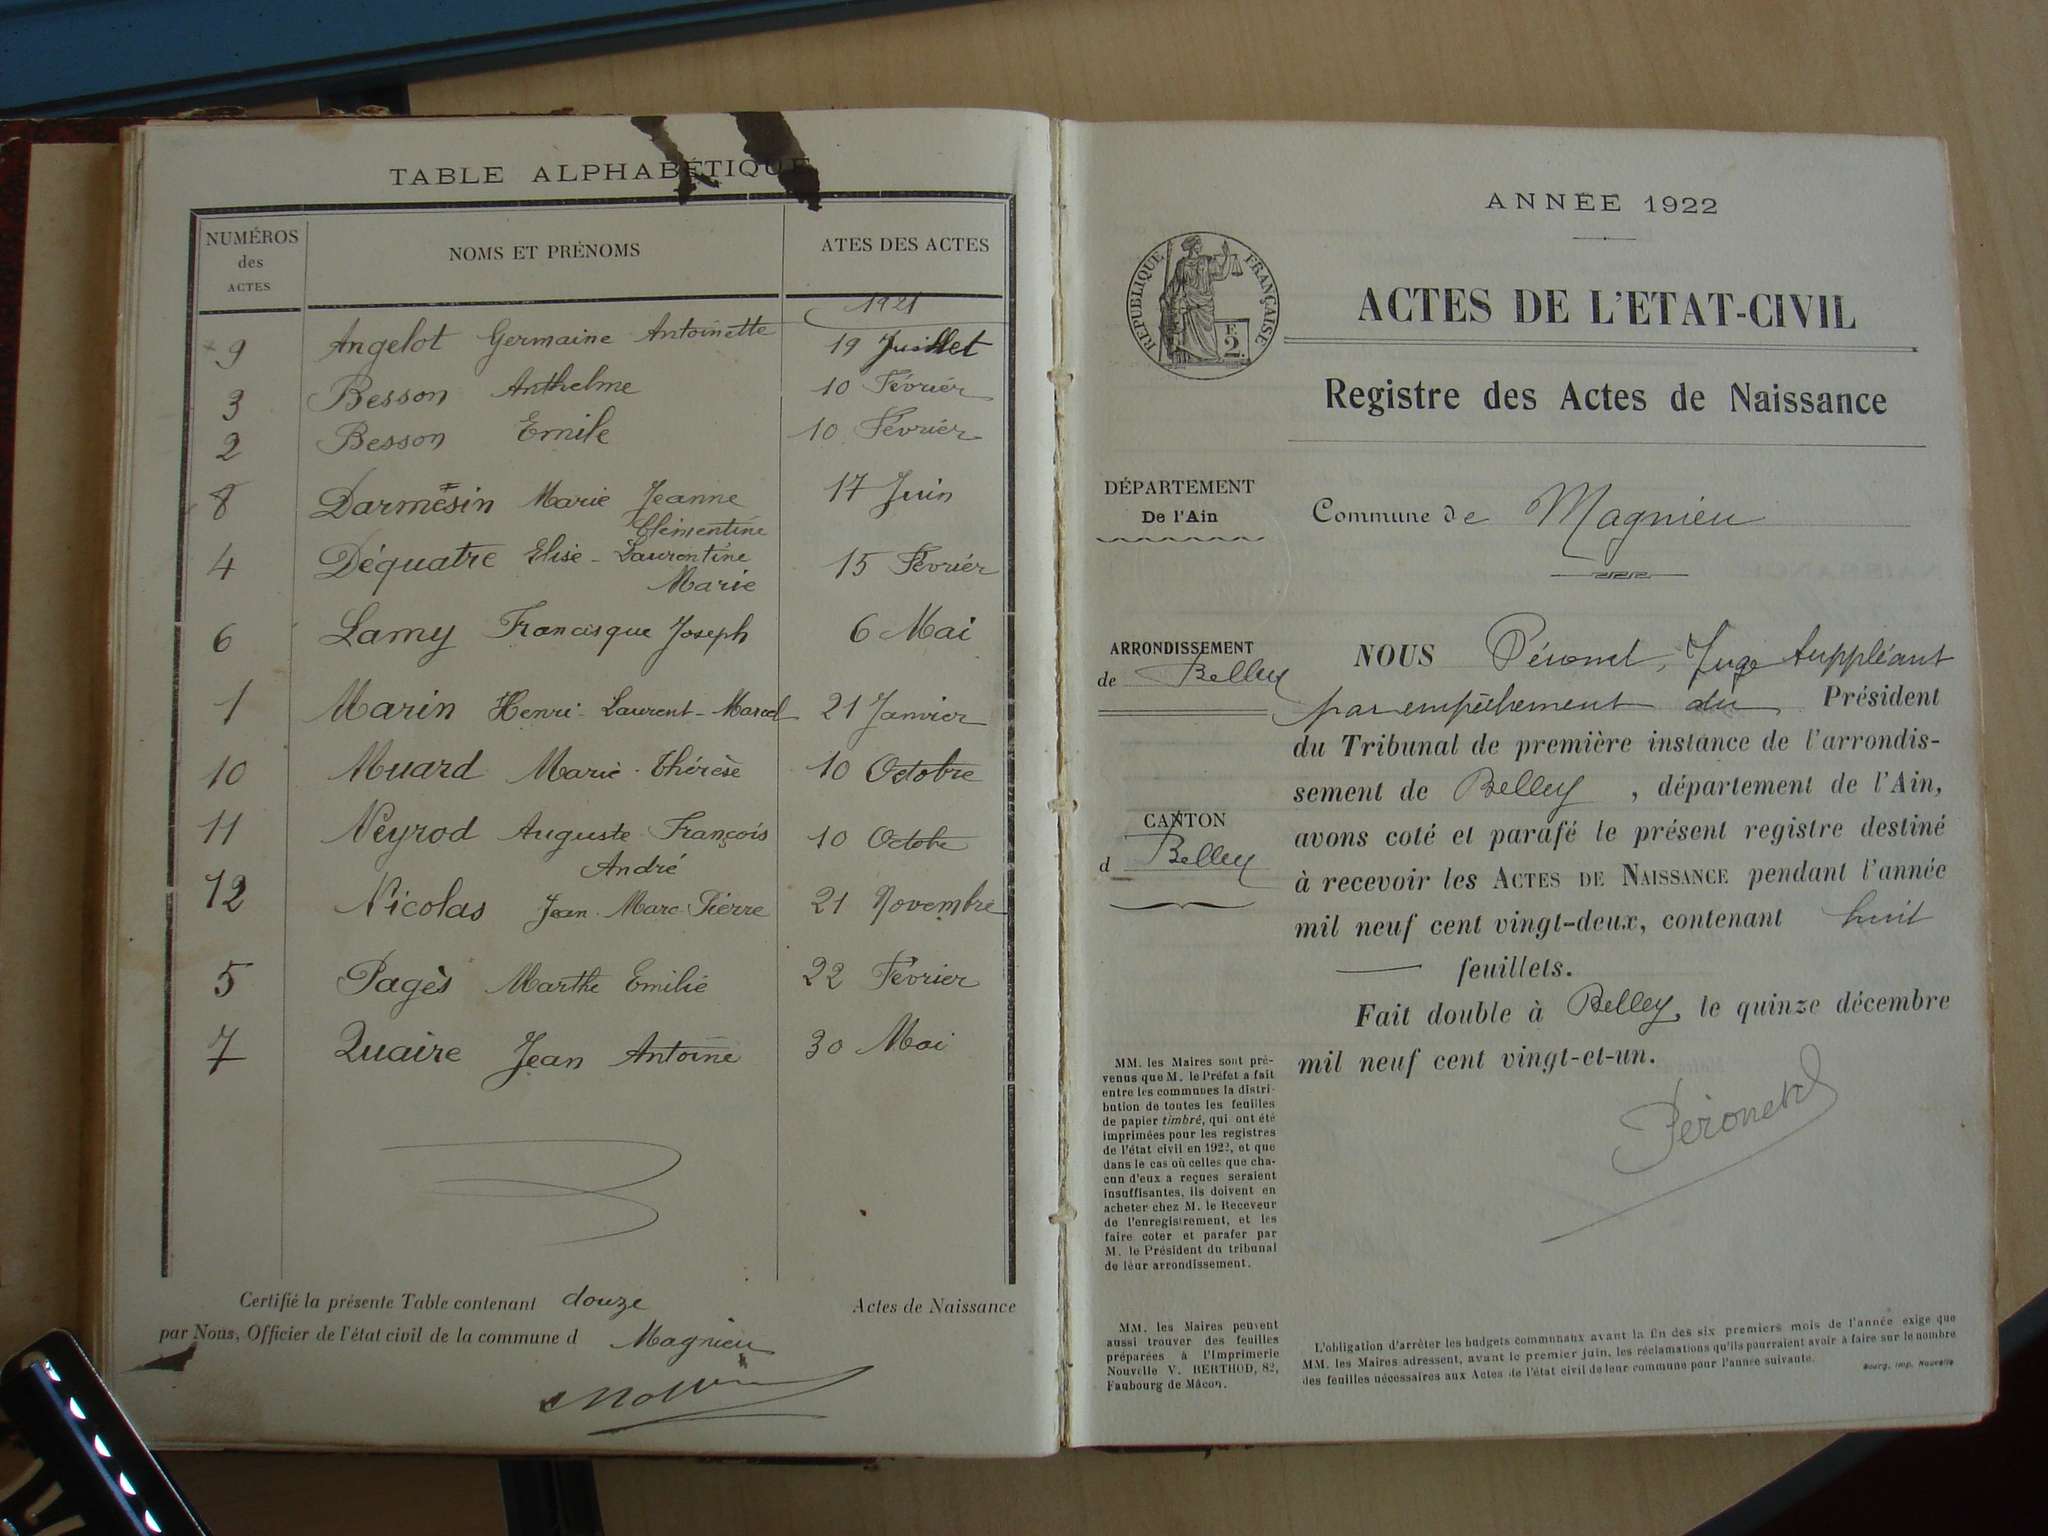 TABLE ALPHABÉTIQUE
NUMÉROS
des
ACTES
NOMS ET PRÉNOMS
ATES DES ACTES
1921
9 Angelot Germaine Antoinette 19 Juillet
3 Besson Anthelme 10 Février
2 Besson Emile 10 Février
8 Darmésin Marie Jeanne 17 Juin
Clémentine
4 Déquatre Elise - Laurentine 15 Février
Marie
6 Lamy Francisque Joseph 6 Mai
1 Marin Henri - Laurent - Marcel 21 Janvier
10 Muard Marie - Thérèse 10 Octobre
11 Neyrod Auguste François 10 Octobre
André
12 Nicolas Jean - Marc - Pierre 21 Novembre
5 Pagès Marthe Emilie 22 Février
7 Quaire Jean Antoine 30 Mai
Certifié la présente Table contenant douze Actes de Naissance
par Nous, Officier de l'état civil de la commune d Magnieu
ANNÉE 1922
RÉPUBLIQUE FRANÇAISE
F.
2.
ACTES DE L'ETAT-CIVIL
Registre des Actes de Naissance
DÉPARTEMENT
De l'Ain
Commune de Magnieu
ARRONDISSEMENT
de Belley
CANTON
d Belley
NOUS Péronet, Juge Suppléant
par empêchement du Président
du Tribunal de première instance de l'arrondis-
sement de Belley, département de l'Ain,
avons coté et parafé le présent registre destiné
à recevoir les ACTES DE NAISSANCE pendant l'année
mil neuf cent vingt-deux, contenant huit
feuillets.
Fait double à Belley, le quinze décembre
mil neuf cent vingt-et-un.
Péronet
MM. les Maires sont pré-
venus que M. le Préfet a fait
entre les communes la distri-
bution de toutes les feuilles
de papier timbré, qui ont été
imprimées pour les registres
de l'état civil en 1922, et que
dans le cas où celles que cha-
cun d'eux a reçues seraient
insuffisantes, ils doivent en
acheter chez M. le Receveur
de l'enregistrement, et les
faire coter et parafer par
M. le Président du tribunal
de leur arrondissement.
MM. les Maires peuvent
aussi trouver des feuilles
préparées à l'Imprimerie
Nouvelle V. BERTHOD, 82,
Faubourg de Mâcon.
L'obligation d'arrêter les budgets communaux avant la fin des six premiers mois de l'année exige que
MM. les Maires adressent, avant le premier juin, les réclamations qu'ils pourraient avoir à faire sur le nombre
des feuilles nécessaires aux Actes de l'état civil de leur commune pour l'année suivante.
Bourg, imp. Nouvelle